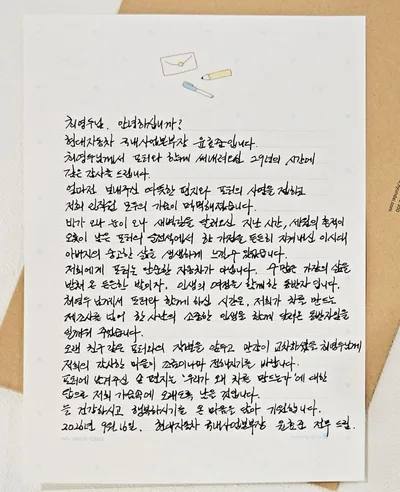 최영수님, 안녕하십니까?
현대자동차 국내사업본부장 윤효준입니다.
최영수님께서 포터와 함께 써내려오신 29년의 시간에
깊은 감사를 드립니다.
얼마전 보내주신 따뜻한 편지와 포터의 사연을 접하고
저희 임직원 모두의 가슴이 먹먹해졌습니다.
비가 오나 눈이 오나 새벽길을 달려오신 지난 시간, 세월의 흔적이
오롯이 남은 포터의 운전석에서 한 가정을 든든히 지켜내신 이시대
아버지의 숭고한 삶을 생생하게 느낄수 있었습니다.
저희에게 포터는 단순한 자동차가 아닙니다. 수많은 가장의 삶을
받쳐 온 든든한 발이자, 인생의 여정을 함께한 동반자입니다.
최영수님께서 포터와 함께 하신 시간은, 저희가 차를 만드는
제조사를 넘어 한 사람의 소중한 인생을 함께 달리는 동반자임을
일깨워 주었습니다.
오랜 친구같은 포터와의 작별을 앞두고 만감이 교차하셨을 최영수님께
저희의 감사한 마음이 조금이나마 전해지기를 바랍니다.
포터에 남겨주신 손 편지는 '우리가 왜 차를 만드는가'에 대한
답으로 저희 가슴속에 오래도록 남을 것입니다.
늘 건강하시고 행복하시기를 온 마음을 담아 기원합니다.
2026년 9월 16일. 현대자동차 국내사업본부장 윤효준 전무 드림.